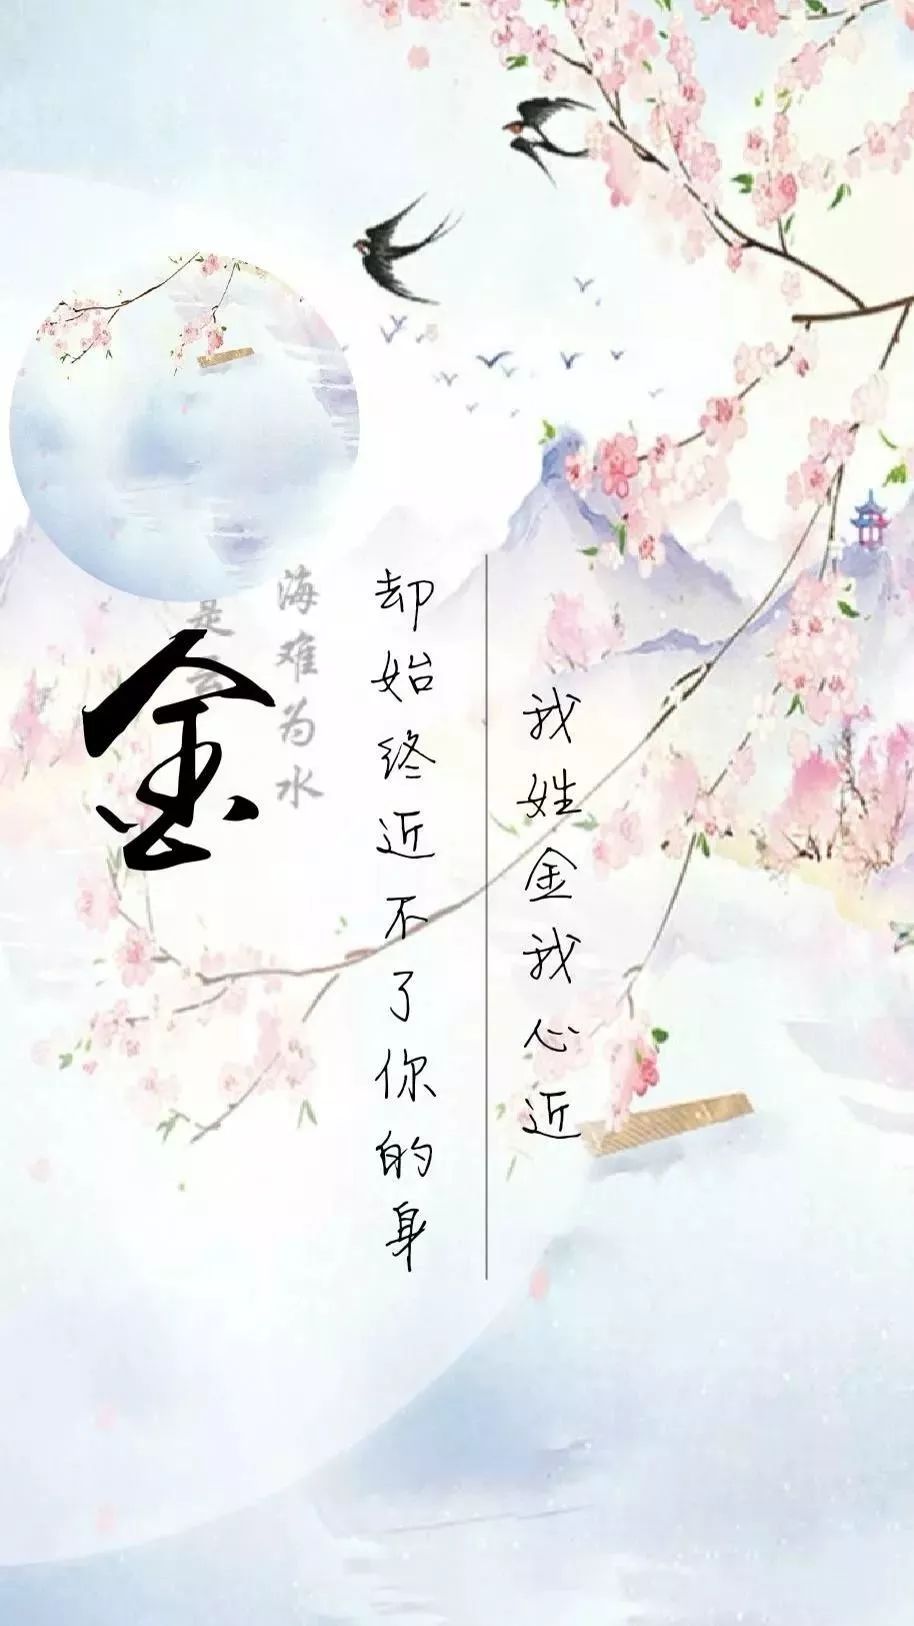 我姓金我心近
却始终近不了你的身
海难为水
是云
金